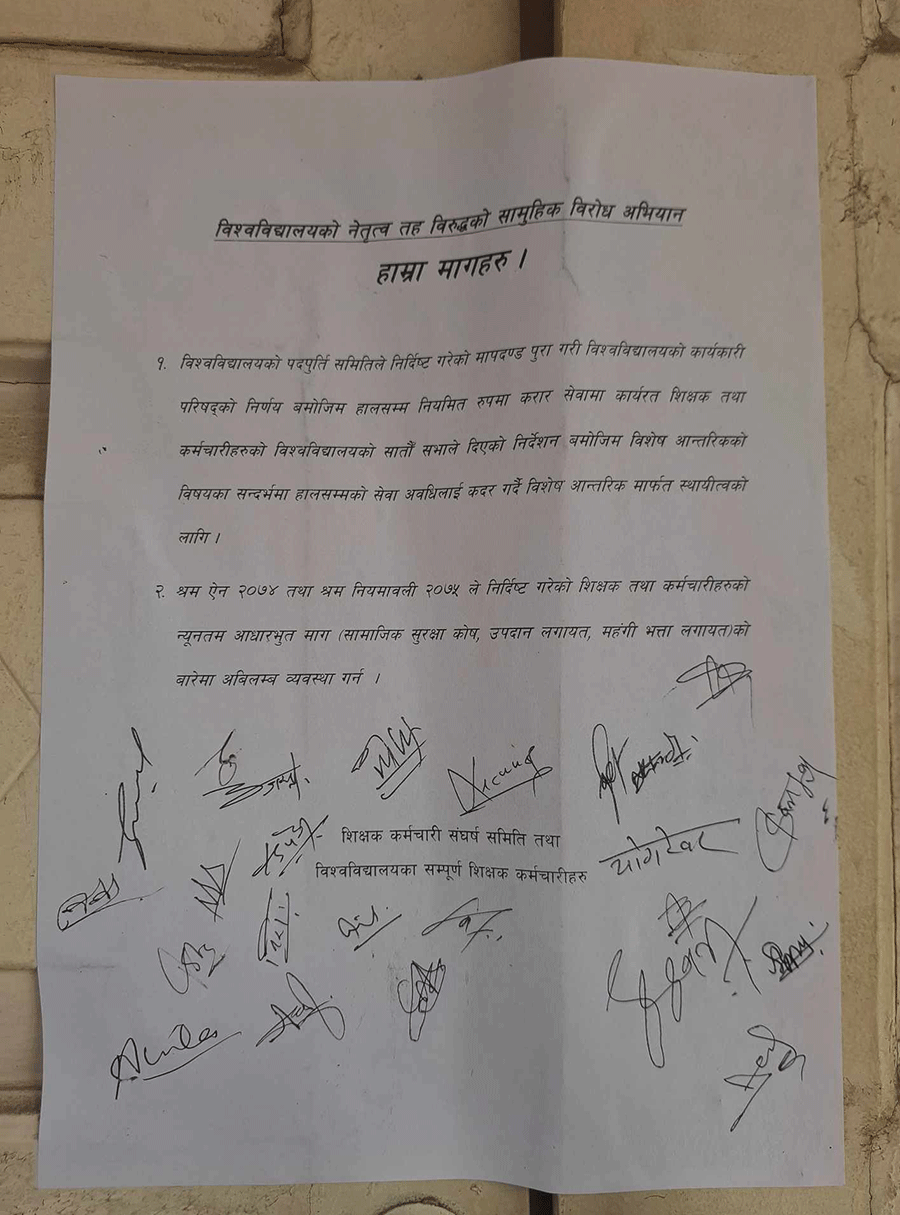 विश्वविद्यालयको नेतृत्व तह विरुद्धको सामुहिक विरोध अभियान
हाम्रा मागहरु ।
१. विश्वविद्यालयको पदपुर्ति समितिले निर्दिष्ट गरेको मापदण्ड पुरा गरी विश्वविद्यालयको कार्यकारी
परिषद्को निर्णय बमोजिम हालसम्म नियमित रुपमा करार सेवामा कार्यरत शिक्षक तथा
कर्मचारीहरुको विश्वविद्यालयको सातौं सभाले दिएको निर्देशन बमोजिम विशेष आन्तरिकको
विषयका सन्दर्भमा हालसम्मको सेवा अवधिलाई कदर गर्दै विशेष आन्तरिक मार्फत स्थायीत्वको
लागि ।
२. श्रम ऐन २०७४ तथा श्रम नियमावली २०७५ ले निर्दिष्ट गरेको शिक्षक तथा कर्मचारीहरुको
न्यूनतम आधारभुत माग (सामाजिक सुरक्षा कोष, उपदान लगायत, महंगी भत्ता लगायत)को
बारेमा अबिलम्ब व्यवस्था गर्न ।
शिक्षक कर्मचारी संघर्ष समिति तथा
विश्वविद्यालयका सम्पूर्ण शिक्षक कर्मचारीहरु